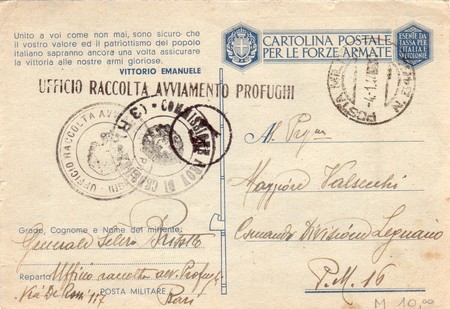 Unito a voi come non mai, sono sicuro che
il vostro valore ed il patriottismo del popolo
italiano sapranno ancora una volta assicurare
la vittoria alle nostre armi gloriose.
VITTORIO EMANUELE
CARTOLINA POSTALE
PER LE FORZE ARMATE
ESENTE DA
TASSA PER
L'ITALIA
UFFICIO RACCOLTA AVVIAMENTO PROFUGHI
POSTA
UFFICIO RACCOLTA
Al
Maggiore Valsecchi
Comando Divisione Legnano
P.M. 16
Grado, Cognome e Nome del mittente:
Generale
Reparto Ufficio raccolta avv. Profughi
POSTA MILITARE
117
Bari
M 10,00